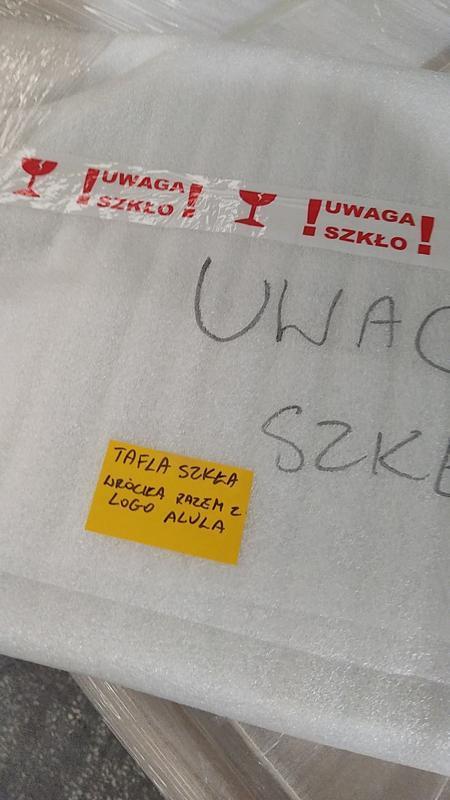 UWAGA UWAGA
SZKŁO SZKŁO
UWAG
SZKŁ
TAFLA SZKŁA
WRÓCIŁA RAZEM Z
LOGO ALULA